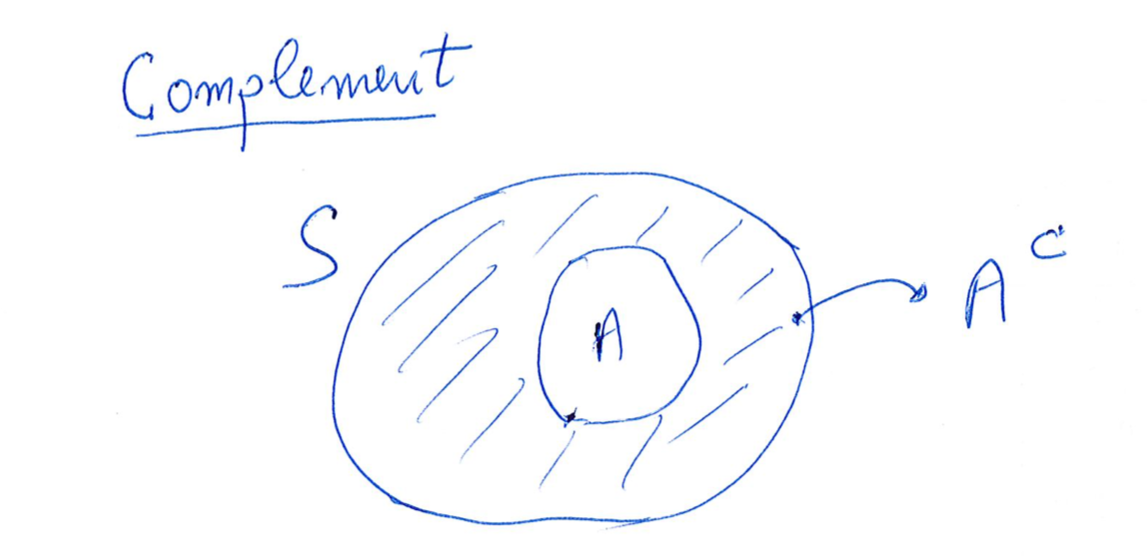 Complement
S
A
A^C